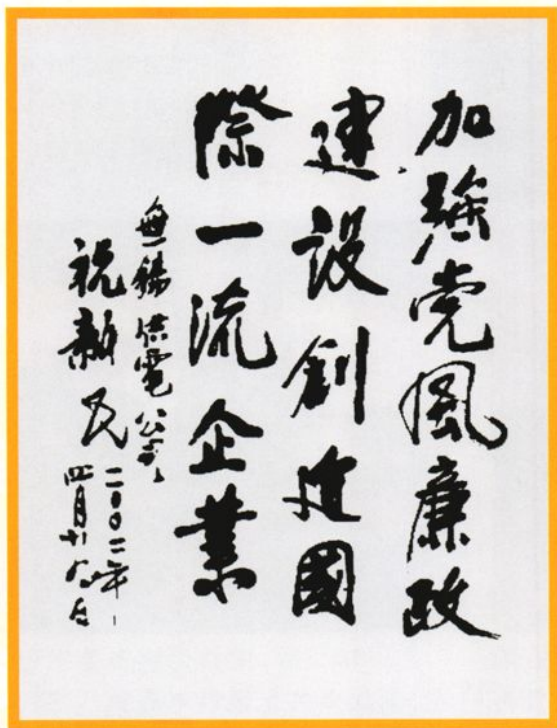 加強党風廉政
建设創建國
際一流企業
無錫供電公司
祝新民
二00二年
四月十九日